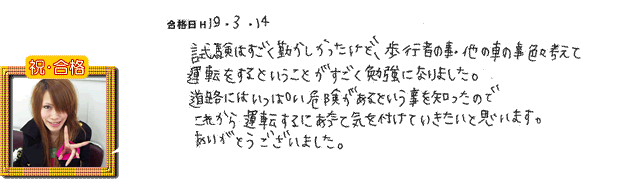 合格日 H19.3.14
試験はすごく勤かしかったけど、歩行者の事・他の車の事色々考えて
運転をするということがすごく勉強になりました。
道路にはいっぱい危険があるという事を知ったので
これから運転するにあたって気を付けていきたいと思います。
ありがとうございました。
祝・合格